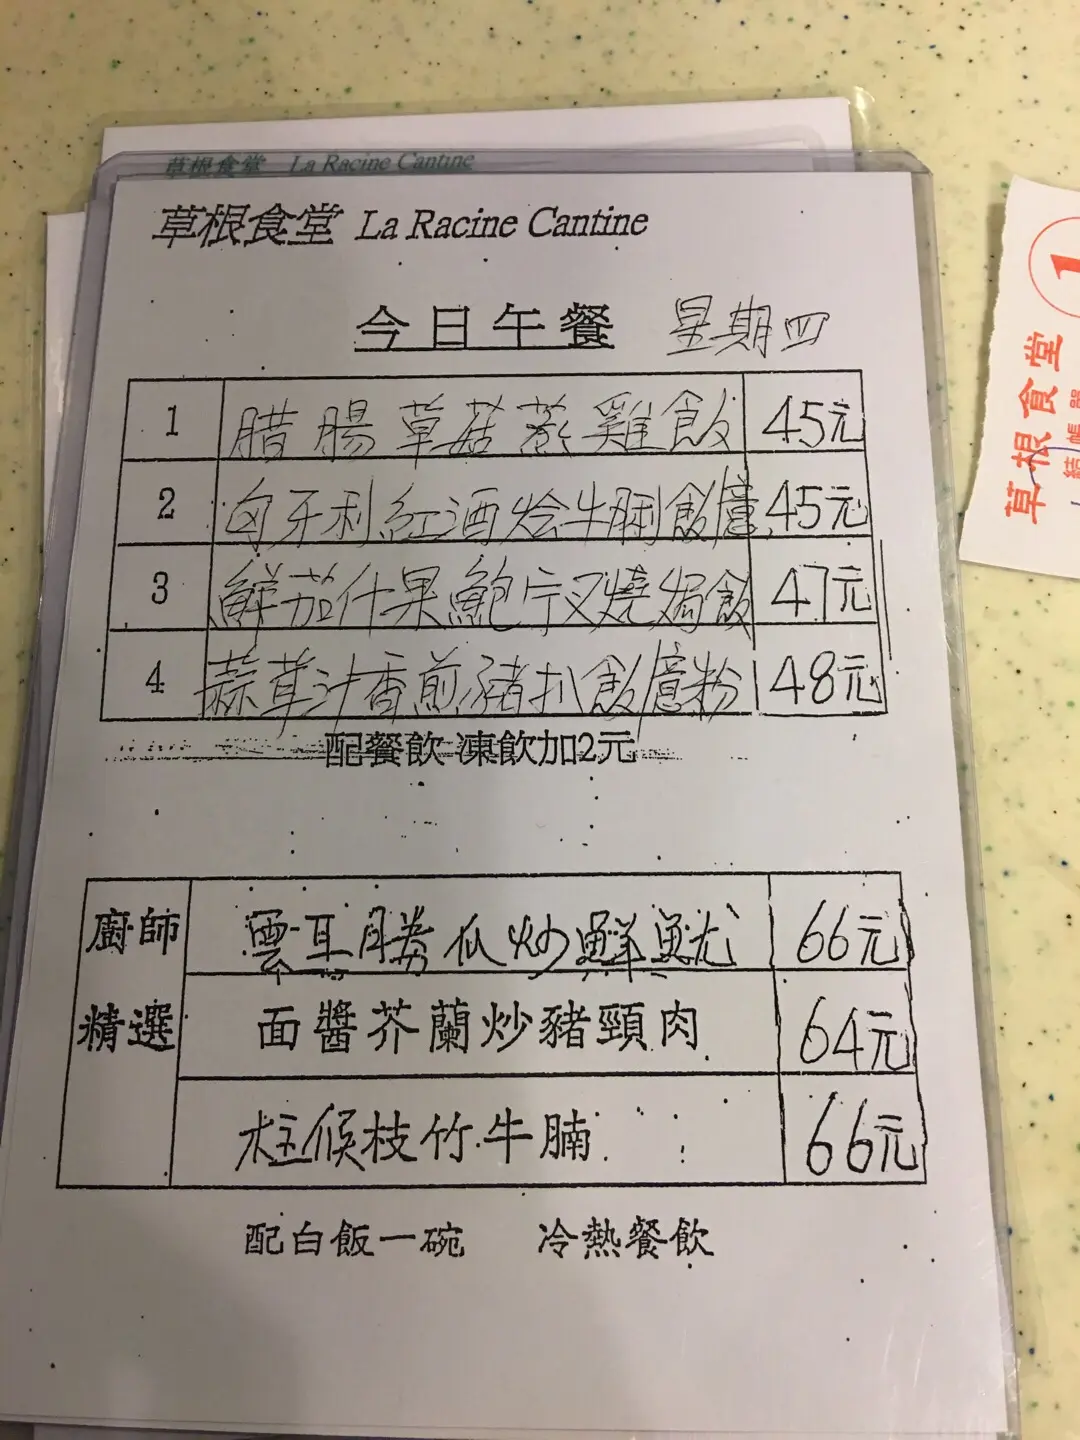 草根食堂 La Racine Cantine
草根食堂 La Racine Cantine
今日午餐 星期四
1 腊腸草菇蒸雞飯 45元
2 匈牙利紅酒烩牛脷飯/意 45元
3 鮮茄什果鮑片叉燒焗飯 47元
4 蒜茸汁香煎豬扒飯/意粉 48元
配餐飲 凍飲加2元
廚師精選
雲耳勝瓜炒鮮魷 66元
面醬芥蘭炒豬頸肉 64元
柱候枝竹牛腩 66元
配白飯一碗 冷熱餐飲
1
草根食堂